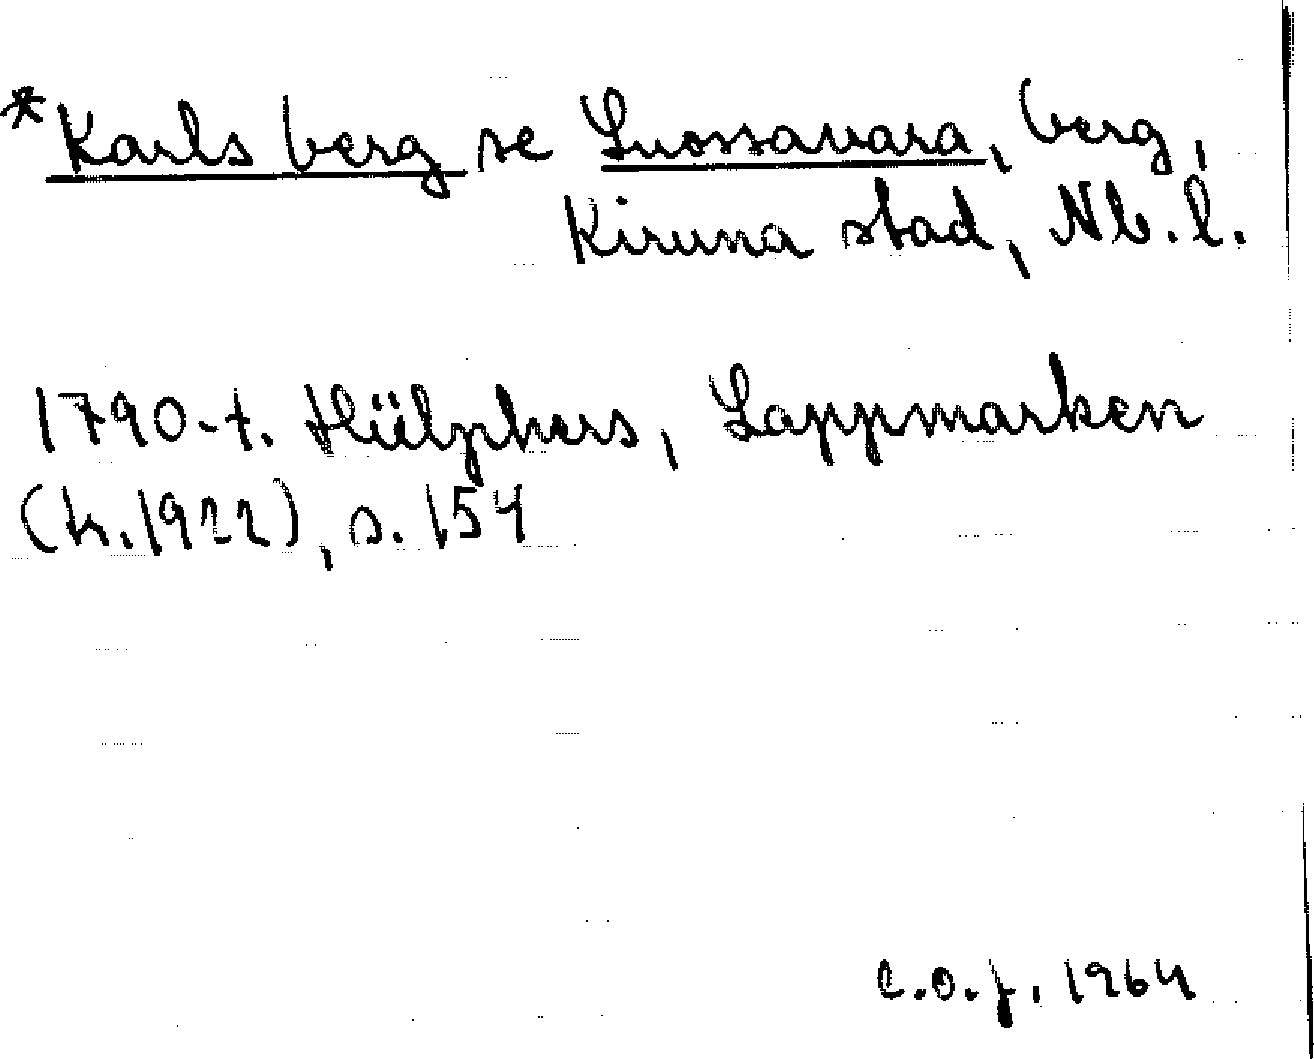 *Karls berg se Luossavara, berg,
Kiruna stad, Nb. l.
1790-t. Hülphers, Lappmarken
(tr. 1922), s. 154
C.O.J. 1964